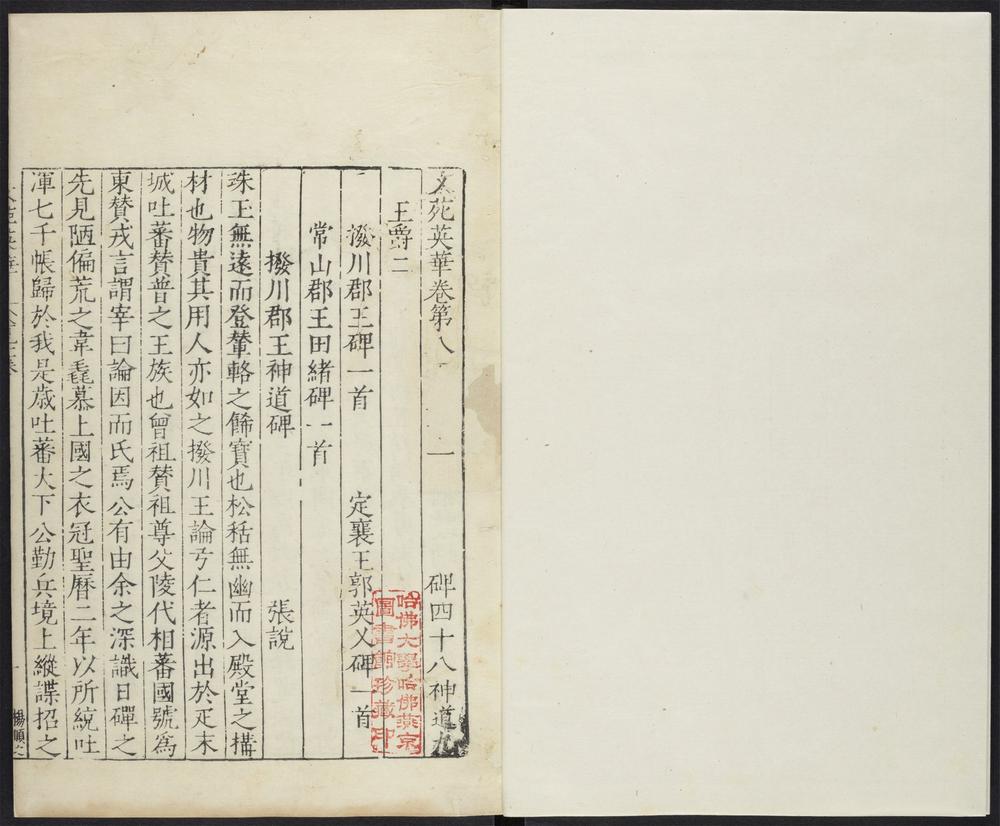 文苑英華卷第八 一 碑四十八神道九
王爵二
撥川郡王碑一首 定襄王郭英乂碑一首
常山郡王田緒碑一首
撥川郡王神道碑 張說
珠玉無遠而登輦輅之餙寶也松栝無幽而入殿堂之搆
材也物貴其用人亦如之撥川王論弓仁者源出於疋末
城吐蕃賛普之王族也曾祖賛祖尊父陵代相蕃國號爲
東賛戎言謂宰曰論因而氏焉公有由余之深識日磾之
先見陋偏荒之韋毳慕上國之衣冠聖曆二年以所統吐
渾七千帳歸於我是歳吐蕃大下公勤兵境上縱諜招之
楊順之
哈佛大學哈佛燕京
圖書館珍藏印